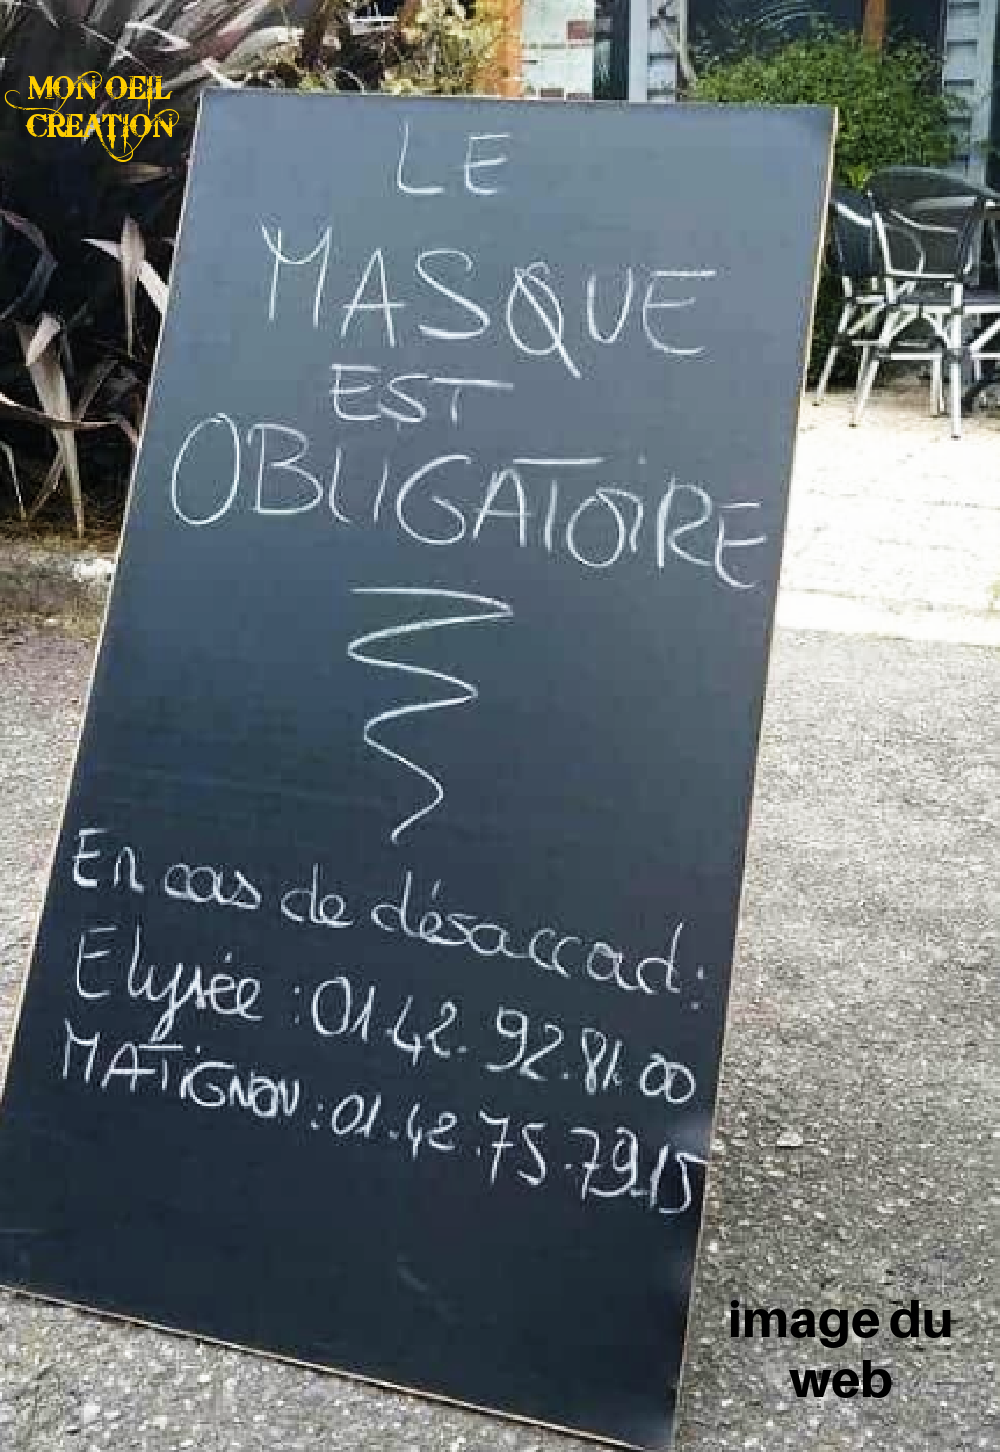 MON OEIL
CREATION
LE
MASQUE
EST
OBLIGATOIRE
En cas de désaccord:
Elysée : 01.42.92.81.00
MATIGNON : 01.42.75.79.15
image du
web